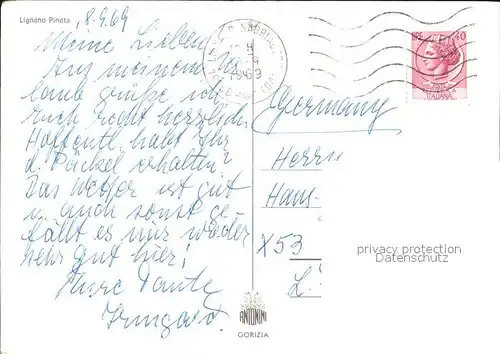 Lignano Pineta, 8.9.69
Meine Lieben!
Aus meinem
grüße ich
Euch recht herzlich.
Hoffentl. habt Ihr
d. Päckel erhalten?
Das Wetter ist gut
u. auch sonst ge-
fällt es mir wieder
sehr gut hier!
Eure Tante
Irmgard.
Germany
Herrn
Hans-
X53
L.
40
ITALIANA
privacy protection
Datenschutz
ANTONINI
GORIZIA